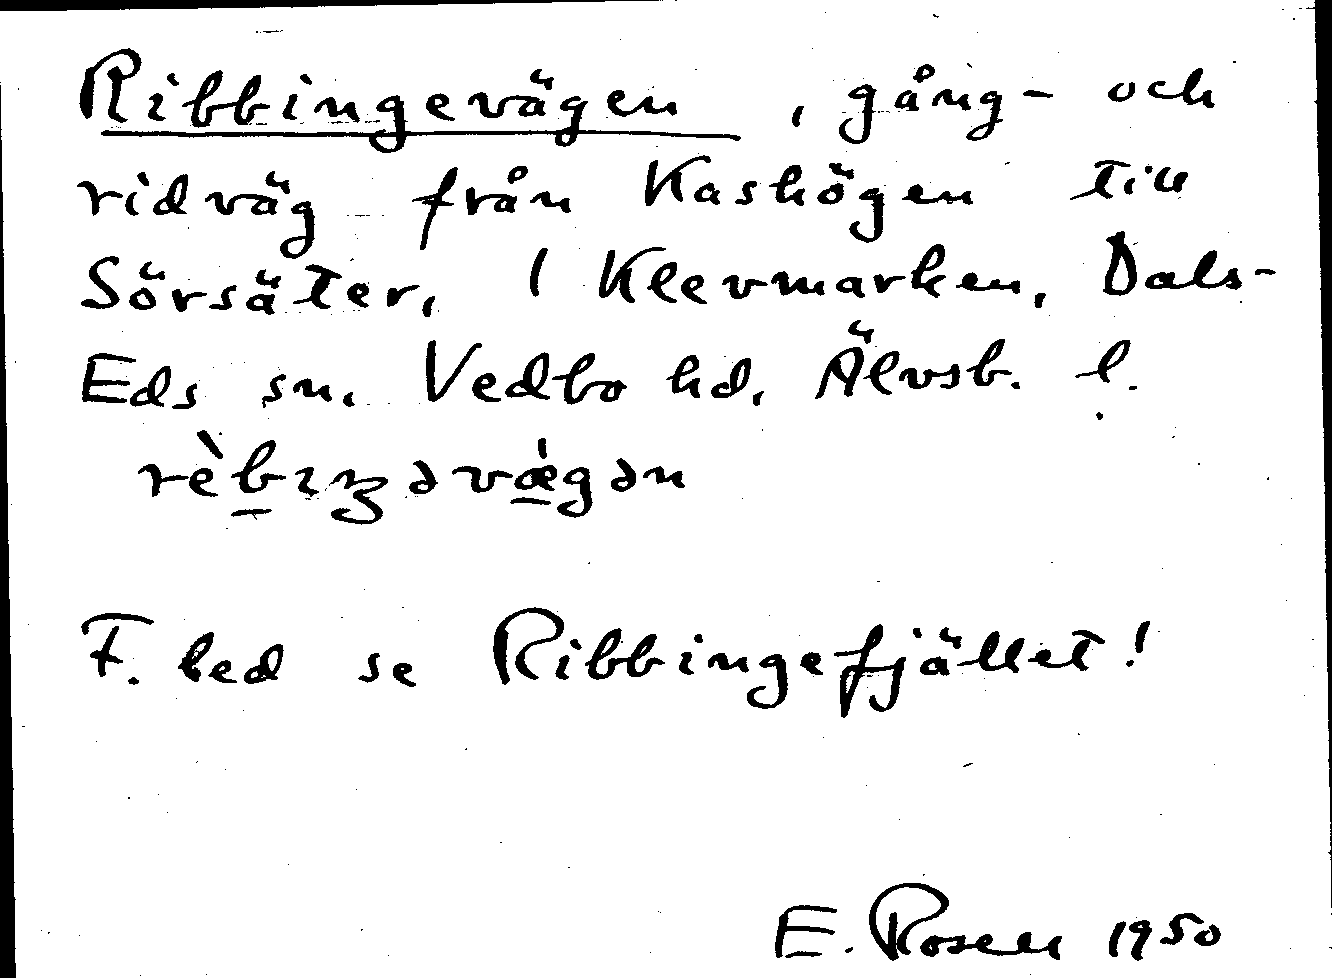 Ribbingevägen, gång- och
ridväg från Kashögen till
Sörsäter, i Klevmarken, Dals-
Eds sn. Vedbo hd. Älvsb. l.
rèb̠ıŋəvæ̠̀gən
F. led se Ribbingefjället!
E. Rosell 1950